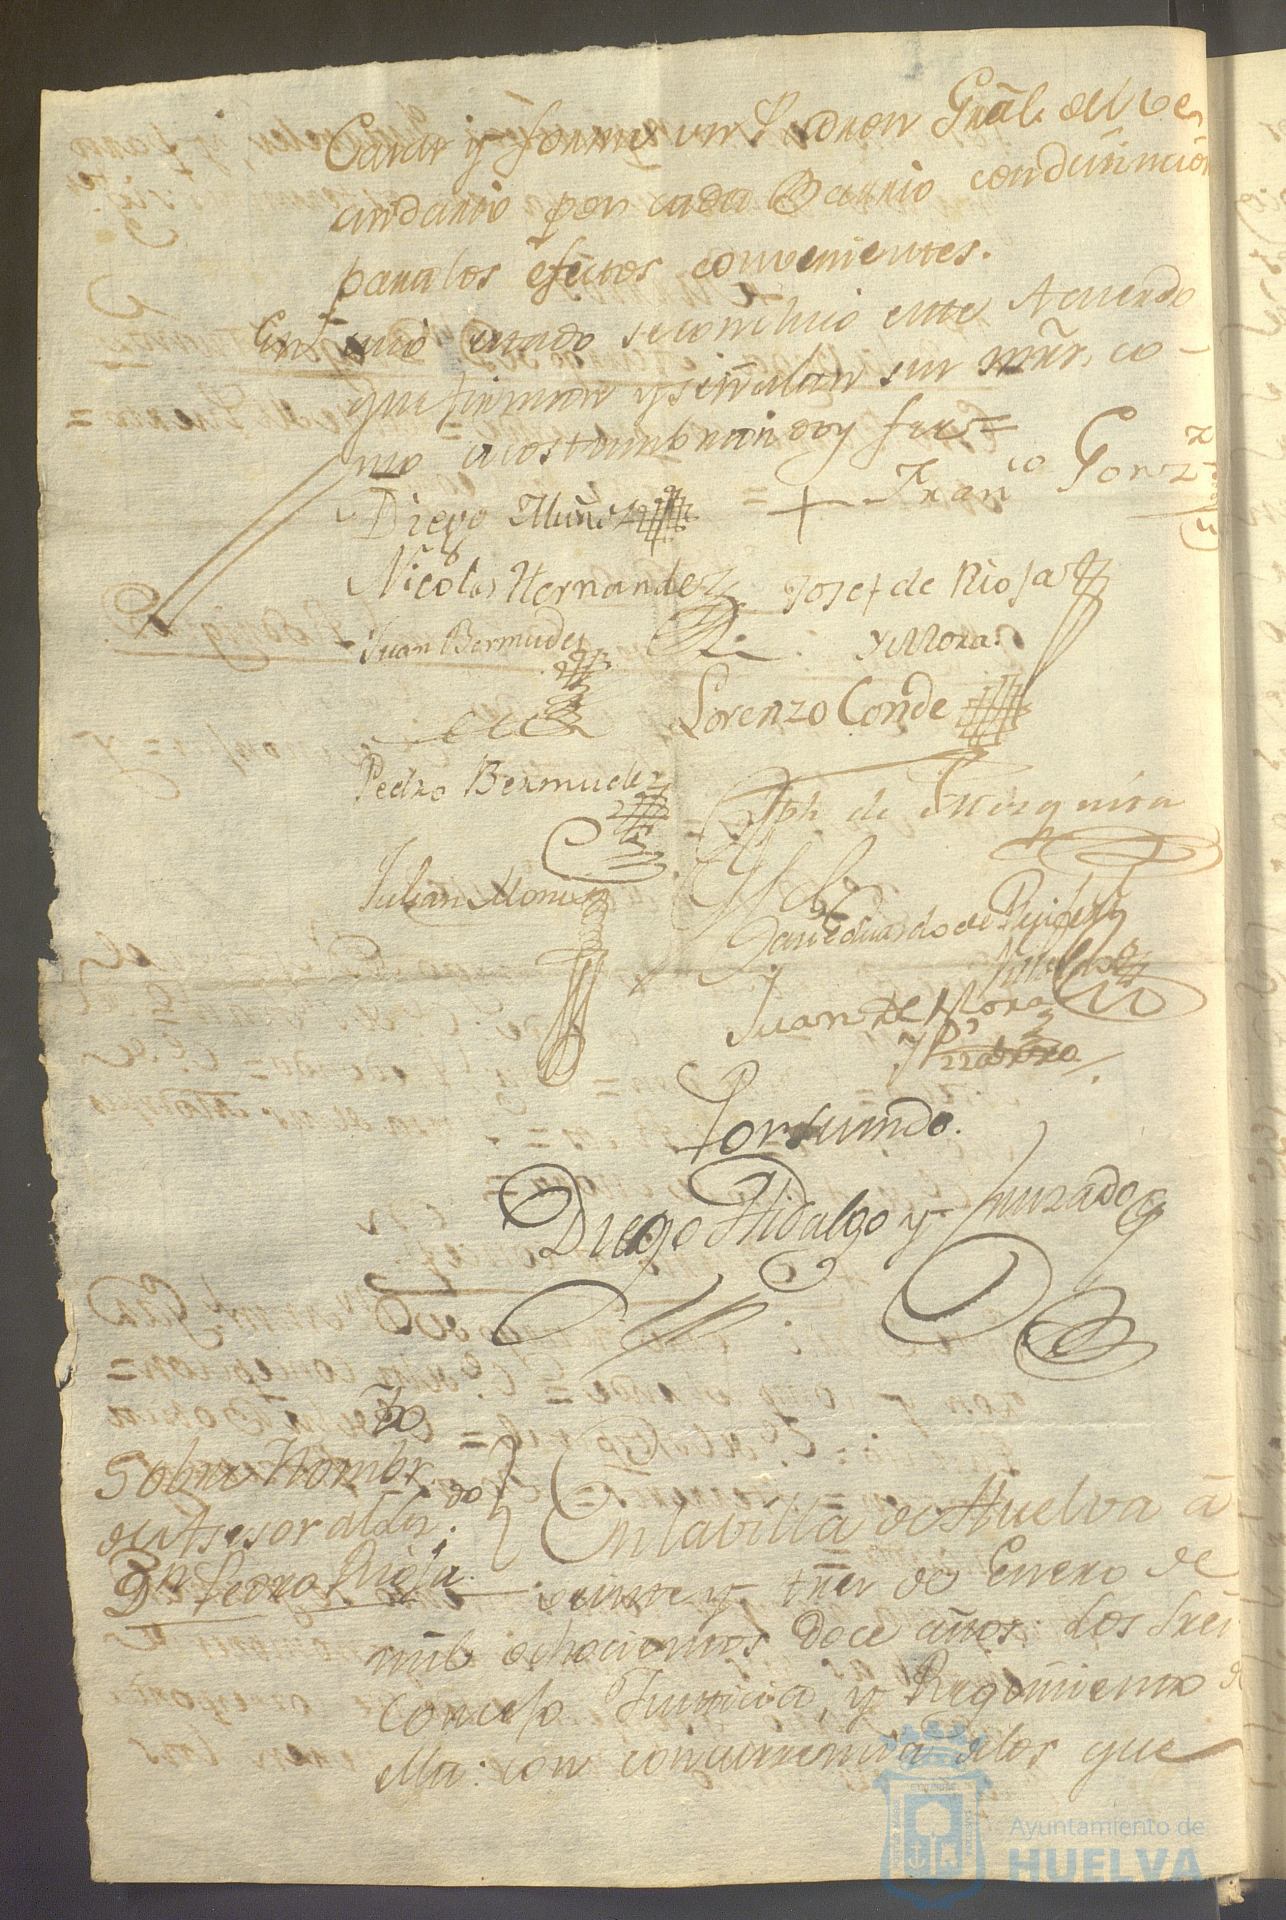 Casas y forme un Padron Gral. del Ve
cindario por cada Barrio con distincion
para los efectos convenientes.
En cuio estado se concluio este Acuerdo
que firman y señalan sus mrds. co
mo acostumbran doy fee =
Diego Muñiz = + Franco Gonz
Nicolas Hernandez Josef de Rioja
Juan Bermudez y Mora.
Lorenzo Conde
Pedro Bermudez
Jph de Mezquita
Julian Monis
Juan de Mora
Diego Hidalgo y Jurado
Sobre Nombr.to
de Asesor al Ldo.
Dn Pedro Rioja.
En la villa de Huelva á
veinte y tres de Enero de
mil ochocientos doce años: los Sres.
Concejo Justicia, y Regimiento de
ella: con concurrencia de los que
Ayuntamiento de
HUELVA